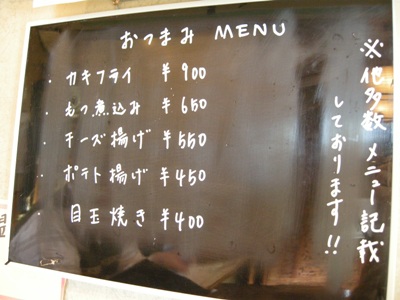 おつまみ MENU
・カキフライ ¥900
・もつ煮込み ¥650
・チーズ揚げ ¥550
・ポテト揚げ ¥450
・目玉焼き ¥400
※他多数メニュー記載
しております!!